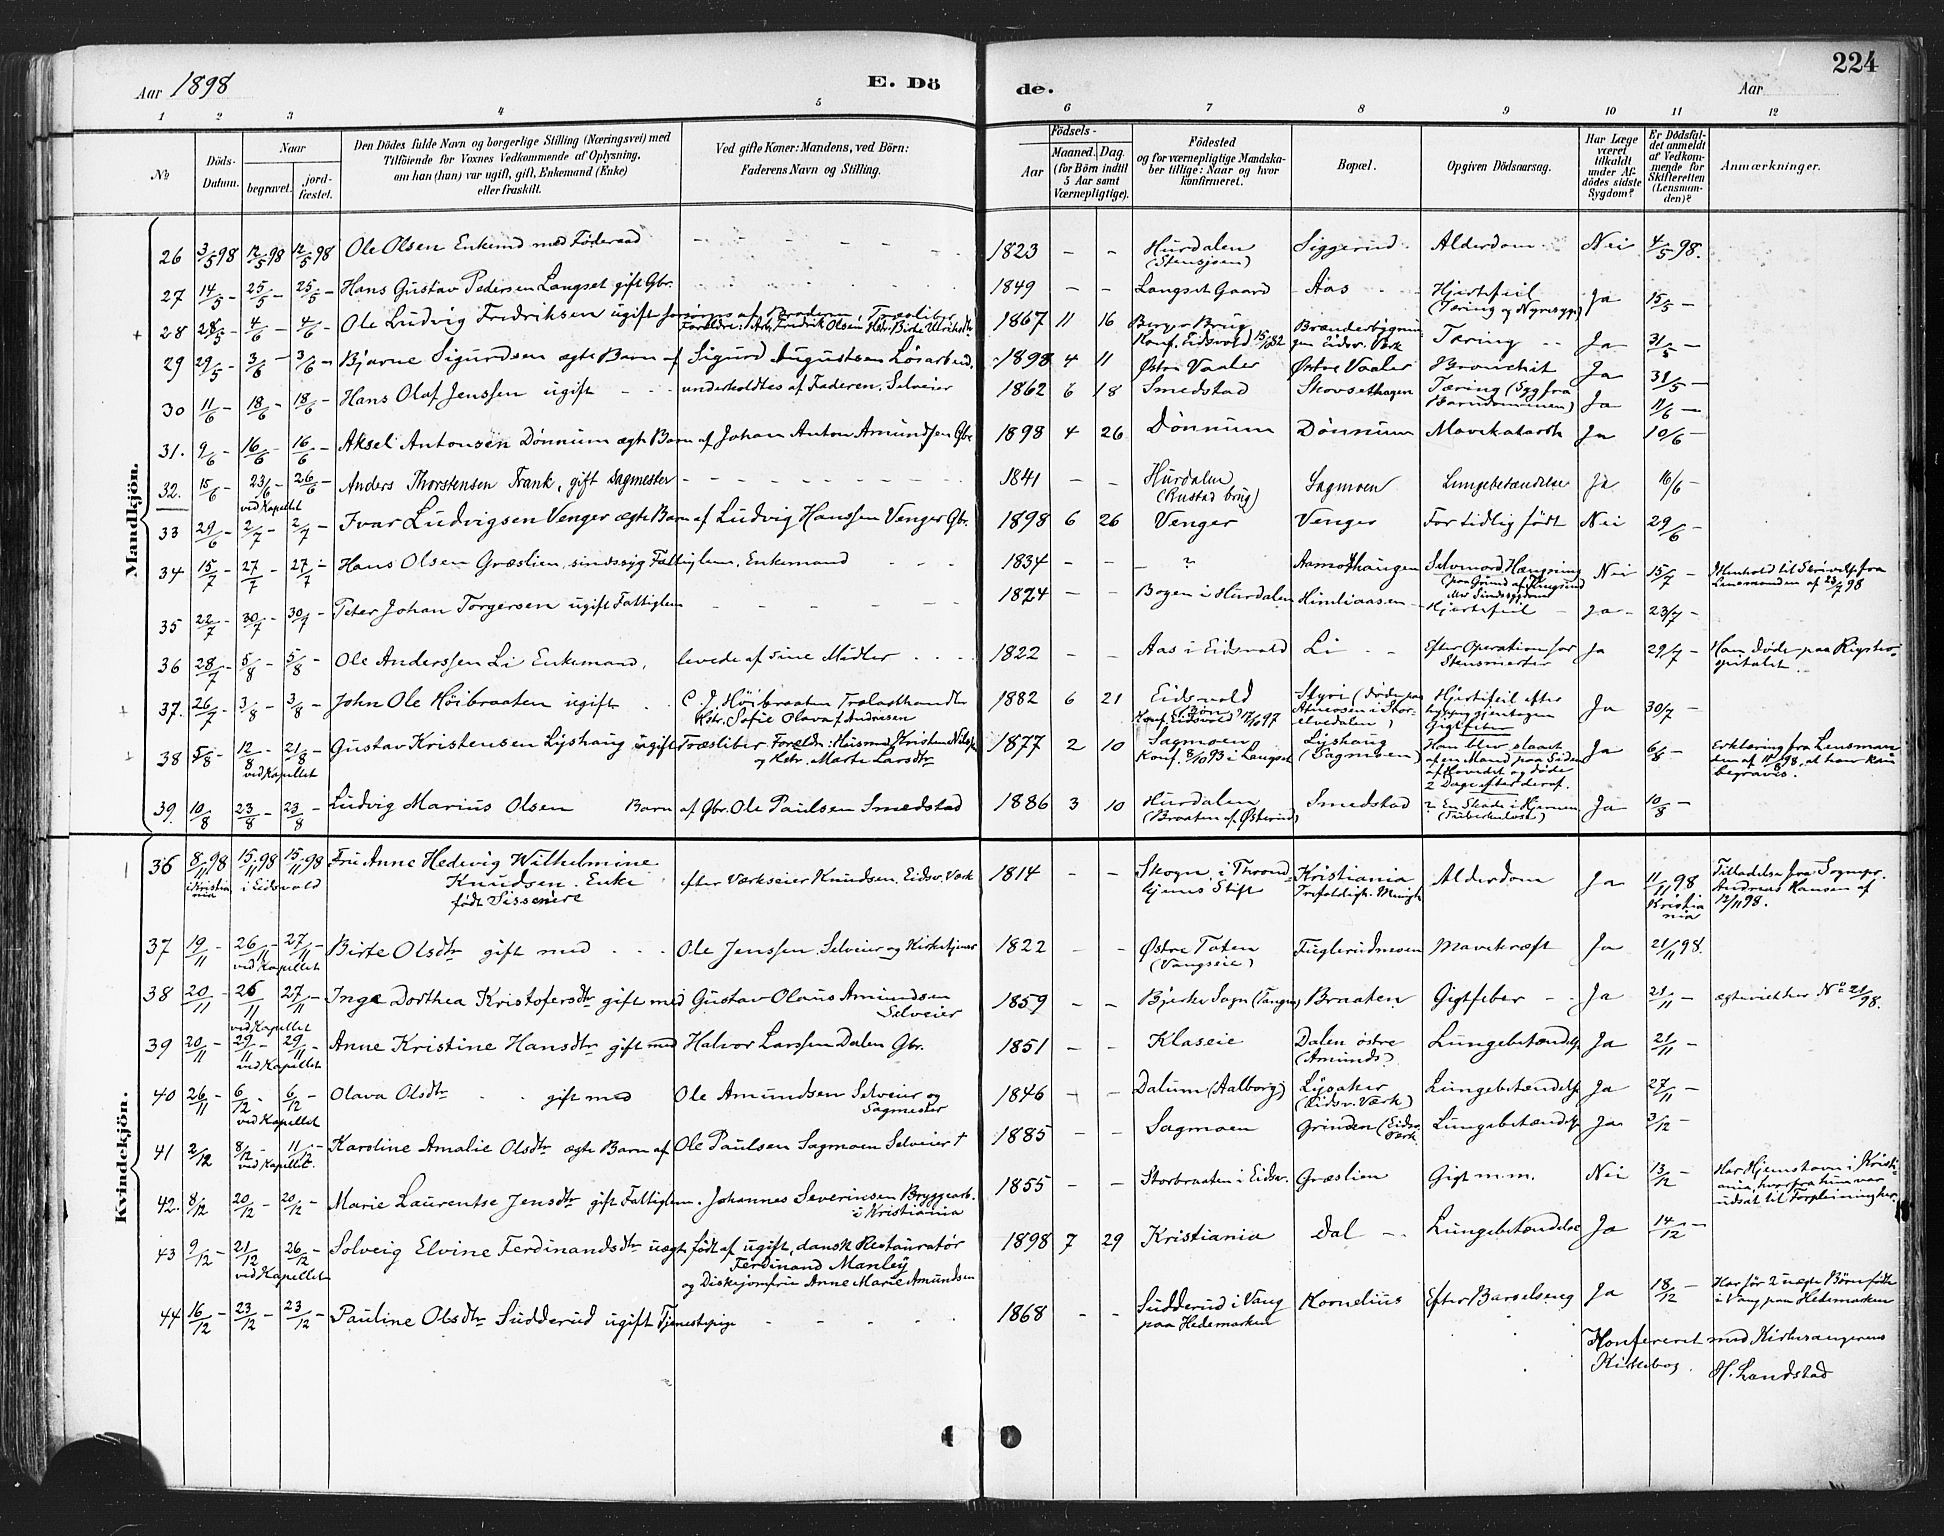 Aar 1898
E. Dö
de.
224
Aar
1 2 3 4 5 6 7 8 9 10 11 12
No
Döds-Datum.
Naar begravet. jordfæstet.
Den Dödes fulde Navn og borgerlige Stilling (Næringsvei) med
Tilföiende for Voxnes Vedkommende af Oplysning,
om han (hun) var ugift, gift, Enkemand (Enke)
eller fraskilt.
Ved gifte Koner: Mandens, ved Börn:
Faderens Navn og Stilling.
Födsels-
Aar Maaned. Dag.
(for Börn indtil
5 Aar samt
Værnepligtige).
Födested
og for værnepligtige Mandska-
ber tillige: Naar og hvor
konfirmeret.
Bopæl.
Opgiven Dödsaarsag.
Har Læge
været
tilkaldt
under Af-
dödes sidste
Sygdom?
Er Dödsfal-
det anmeldt
af Vedkom-
mende for
Skifteretten
(Lensman-
den)?
Anmærkninger.
Mandkjön.
26 3/5 98 12/5 98 12/5 98 Ole Olsen Enkemd med Föderaad 1823 - - Hurdalen (Stensjøen) Siggerud Alderdom Nei 4/5 98.
27 14/5 - 25/5 - 25/5 - Hans Gustav Pedersen Langset gift Gbr. 1849 - - Langset Gaard Aas Hjertefeil (Tæring og Nyresyge) Ja 15/5 -
28 28/5 4/6 - 4/6 - Ole Ludvig Fredriksen ugift forsörges af Broderen, Træsliber
Forældre: Arb. Fredrik Olsen, Hstr. Birte Ulriksdtr 1867 11 16 Berger Brug Konf. Eidsvold 15/10 82 Branderbygningen Eidsv. Værk Tæring Ja 31/5 -
29 29/5 3/6 - 3/6 - Bjarne Sigurdsen ægte Barn af Sigurd Augustsen Lösarbeid. 1898 4 11 Østre Vaaler Østre Vaaler Bronchit Ja 31/5 -
30 11/6 - 18/6 - 18/6 - Hans Olaf Jenssen ugift underholdtes af Faderen. Selveier 1862 6 18 Smedstad Skovsethagen Tæring (Syg fra Barndommen) Ja 11/6 -
31. 9/6 - 16/6 - 16/6 - Aksel Antonsen Dönnum ægte Barn af Johan Anton Amundsen Gbr 1898 4 26 Dönnum Dönnum Mavekatarrh Ja 10/6 -
32. 15/6 - 23/6 - ved Kapellet 26/6 - Anders Thorstensen Frank, gift Sagmester 1841 - - Hurdalen (Rustad brug) Sagmoen Lungebetændelse Ja 16/6 -
33 29/6 - 2/7 - 2/7 - Ivar Ludvigsen Venger ægte Barn af Ludvig Hanssen Venger Gbr. 1898 6 26 Venger Venger For tidlig födt Nei 29/6 -
34 15/7 - 27/7 - 27/7 - Hans Olsen Græslien, sindssyg Fattiglem, Enkemand 1834 - - ? Aamodthaugen Selvmord, Hængning Nei 15/7 - I Henhold til Skrivelse fra Lensmanden af 23/7 98
35 22/7 - 30/7 - 30/7 - Peter Johan Torgersen ugift Fattiglem 1824 - - Bogen i Hurdalen Himliaasen Hjertefeil Ja - 23/7 -
36 28/7 - 5/8 - 5/8 - Ole Anderssen Li Enkemand, levede af sine Midler 1822 - - Aas i Eidsvold Li Efter Operation for Stensmerter Ja 29/7 - Han döde paa Rigshospitalet.
37. 26/7 - 3/8 - 3/8 - John Ole Höibraaten ugift C. J. Höibraaten Trælasthandler
Hstr. Sofie Olava f. Andresen 1882 6 21 Eidsvold Konf. Eidsvold 17/10 97 Styri (döde paa Atneosen i Storelvedalen) Hjertefeil efter Gigtfeber Ja 30/7 -
38 5/8 - 12/8 - ved Kapellet 21/8 - Gustav Kristensen Lyshaug ugift Træsliber Foreldr: Husmd Kristen Nilssen
og Hstr. Marte Larsdtr 1877 2 10 Sagmoen Konf. 8/10 93 i Langset Lyshaug (Sagmoen) Han blev slaaet af en Mand paa Siden af Hovedet og döde 2 Dage efter deraf. Ja 6/8 - Erklæring fra Lensmanden af 11/8 98, at han kan begraves.
39. 10/8 23/8 - 23/8 - Ludvig Marius Olsen Barn af Gbr. Ole Paulsen Smedstad 1886 3 10 Hurdalen (Braaten af Østerud) Smedstad ? En Skade i Hjernen (Tuberkulose) Ja 10/8 -
Kvindekjön.
36 8/11 98 i Kristiania 15/11 98 i Eidsvold 15/11 98 Fru Anne Hedevig Wilhelmine
Knudsen. Enke
födt Sissenere efter Værkseier Knudsen, Eidsv. Værk 1814 - - Skogn i Throndhjems Stift Kristiania Trefoldigh. Menigh. Alderdom Ja 11/11 98 Kristiania Tilladelse fra Sognepr. Andreas Hansen af 12/11 98.
37 19/11 - 26/11 - ved Kapellet 27/11 - Birte Olsdtr gift med Ole Jenssen Selveier og Kirketjener 1822 - - Østre Toten (Vangseie) Fuglerudmoen Mavekræft Ja 21/11 98.
38 20/11 - 26/11 ved Kapellet 27/11 - Inga Dorthea Kristofersdtr gift med Gustav Olaus Amundsen
Selveier 1859 - - Bjerke Sogn (Tangen) Braaten Gigtfeber Ja 21/11 - ægteviet her No 21/98.
39 20/11 - 29/11 - ved Kapellet 29/11 - Anne Kristine Hansdtr gift med Halvor Larssen Dalen Gbr. 1851 - - Klaseie Dalen östre (Amunds.) Lungebetændelse Ja 21/11 -
40 26/11 - 6/12 - ved Kapellet 6/12 - Olava Olsdtr gift med Ole Amundsen Selveier og
Sagmester 1846 - - Dalum (Aalborg) Lysaker (Eidsv. Værk) Lungebetændelse Ja 27/11 -
41 2/12 8/12 - ved Kapellet. 11/12 - Karoline Amalie Olsdtr ægte Barn af Ole Paulsen Sagmoen Selveier † 1885 - - Sagmoen Grinden (Eidsv. Værk Lungebetændelse Ja 3/12 -
42. 8/12 20/12 - 20/12 - Marie Laurentse Jensdtr gift Fattiglem. Johannes Severinsen Bryggearb.
i Kristiania 1855 - - Storbraaten i Eidsv. Græslien Gigt m.m. Nei 13/12 - Har Hjemstavn i Kristiania, hvorfra hun var udsat til Forpleining her.
43 9/12 - 21/12 ved Kapellet 26/12 - Solveig Elvine Ferdinandsdtr uægte födt af ugift, dansk Restauratör
Ferdinand Manley
og Diskejomfru Anne Marie Amundsen 1898 7 29 Kristiania Dal Lungebetændelse Ja 14/12 -
44 16/12 - 23/12 - 23/12 - Pauline Olsdtr Sudderud ugift Tjenestepige 1868 - - Sudderud i Vang paa Hedemarken Kornelius Efter Barselseng Ja 18/12 - Har för 2 uægte Börn födt i Vang paa Hedemarken
Konfereret med Kirkesangerens
Kirkebog.
H. Landstad